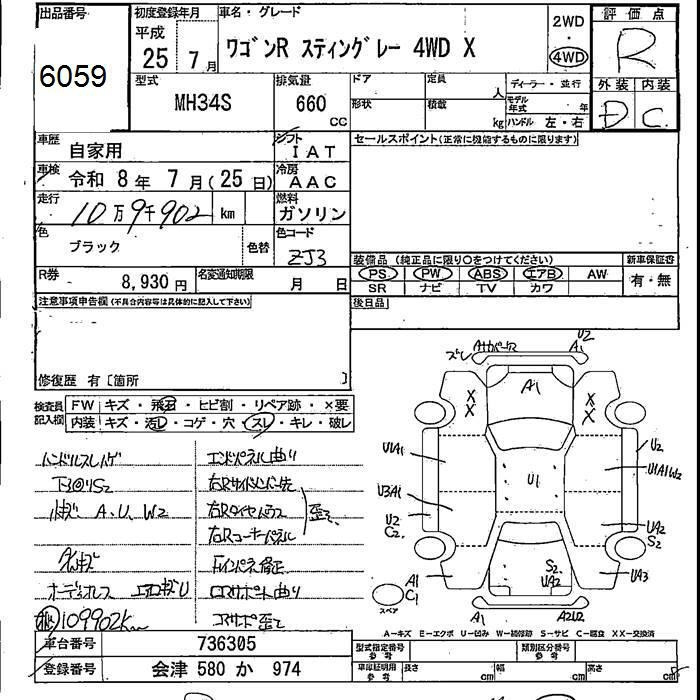 出品番号 初度登録年月 車名・グレード 2WD 評価点
6059 平成 25年 7月 ワゴンR スティングレー 4WD X 4WD R
型式 排気量 ドア 定員 人 ディーラー・並行 外装 内装
MH34S 660 CC 形状 積載 kg モデル年式 年 ハンドル 左・右 D C
車歴 自家用 シフト IAT セールスポイント(正常に機能するものに限ります)
車検 令和 8年 7月(25日) 冷房 AAC
走行 10万9千902 km 燃料 ガソリン
色 ブラック 色替 色コード ZJ3
装備品 (純正品に限り○をつけてください) 新車保証書
R券 8,930円 名変通知期限 月 日 PS PW ABS エアB AW 有・無
SR ナビ TV カワ
注意事項申告欄(不具合内容等は具体的に記入して下さい) 後日品
修復歴 有〔箇所 〕
検査員記入欄 FW キズ・飛石・ヒビ割・リペア跡・×要
内装 キズ・汚レ・コゲ・穴・スレ・キレ・破レ
ズレ A1 U2
A1
XX XX
U1A1 U1 U2 U1A1W2
U3A1
U2 C2 UA2 S2
A1 C1 S2 UA2 UA3
スペア A1 A2U2
ハンドルスレハゲ エンドパネル曲り
下廻りS2 右Rサイドメンバー先
A、U、W2 右Rタイヤハウス 歪ミ
右Rコーナーパネル
Fインパネ修正
オーディオレス エアロキズU
109902Km コアサポ歪ミ
A－キズ E－エクボ U－凹み W－補修跡 S－サビ C－腐食 XX－交換済
車台番号 736305 型式指定番号 参考 類別区分番号 参考
登録番号 会津 580 か 974 車庫証明用 参考 長さ cm 幅 cm 高さ cm